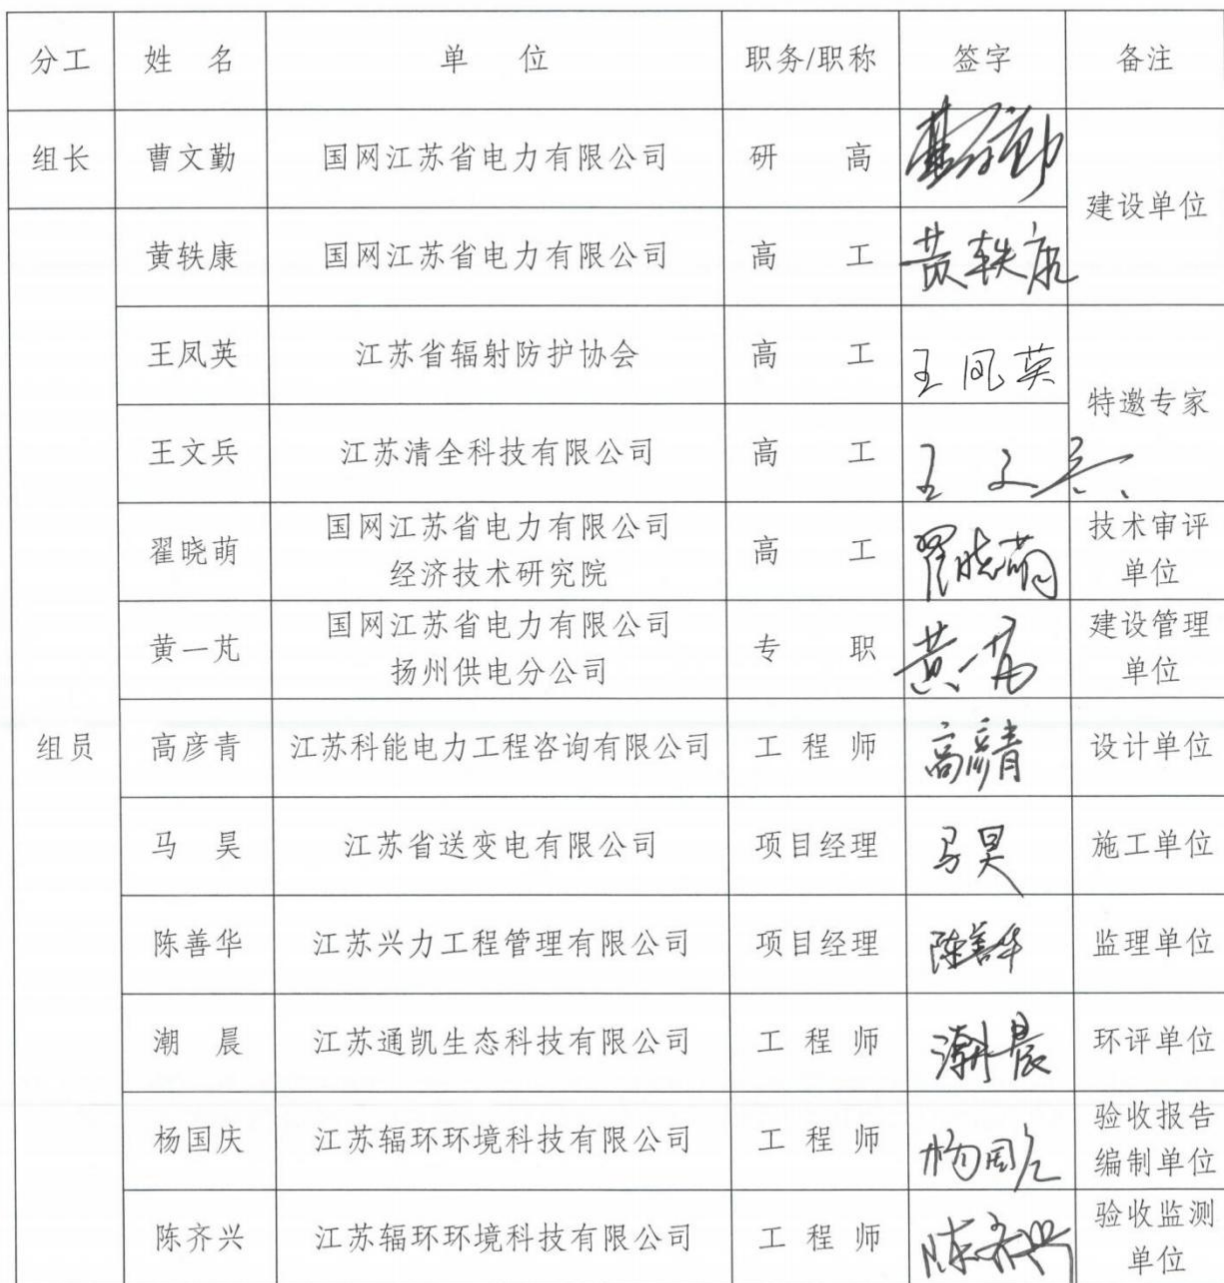 分工 姓 名 单 位 职务/职称 签字 备注
组长 曹文勤 国网江苏省电力有限公司 研 高 曹文勤
建设单位
黄轶康 国网江苏省电力有限公司 高 工 黄轶康
王凤英 江苏省辐射防护协会 高 工 王凤英
特邀专家
王文兵 江苏清全科技有限公司 高 工 王文兵
翟晓萌 国网江苏省电力有限公司
经济技术研究院 高 工 翟晓萌 技术审评
单位
黄一芃 国网江苏省电力有限公司
扬州供电分公司 专 职 黄一芃 建设管理
单位
组员 高彦青 江苏科能电力工程咨询有限公司 工 程 师 高彦青 设计单位
马 昊 江苏省送变电有限公司 项目经理 马昊 施工单位
陈善华 江苏兴力工程管理有限公司 项目经理 陈善华 监理单位
潮 晨 江苏通凯生态科技有限公司 工 程 师 潮晨 环评单位
杨国庆 江苏辐环环境科技有限公司 工 程 师 杨国庆 验收报告
编制单位
陈齐兴 江苏辐环环境科技有限公司 工 程 师 陈齐兴 验收监测
单位